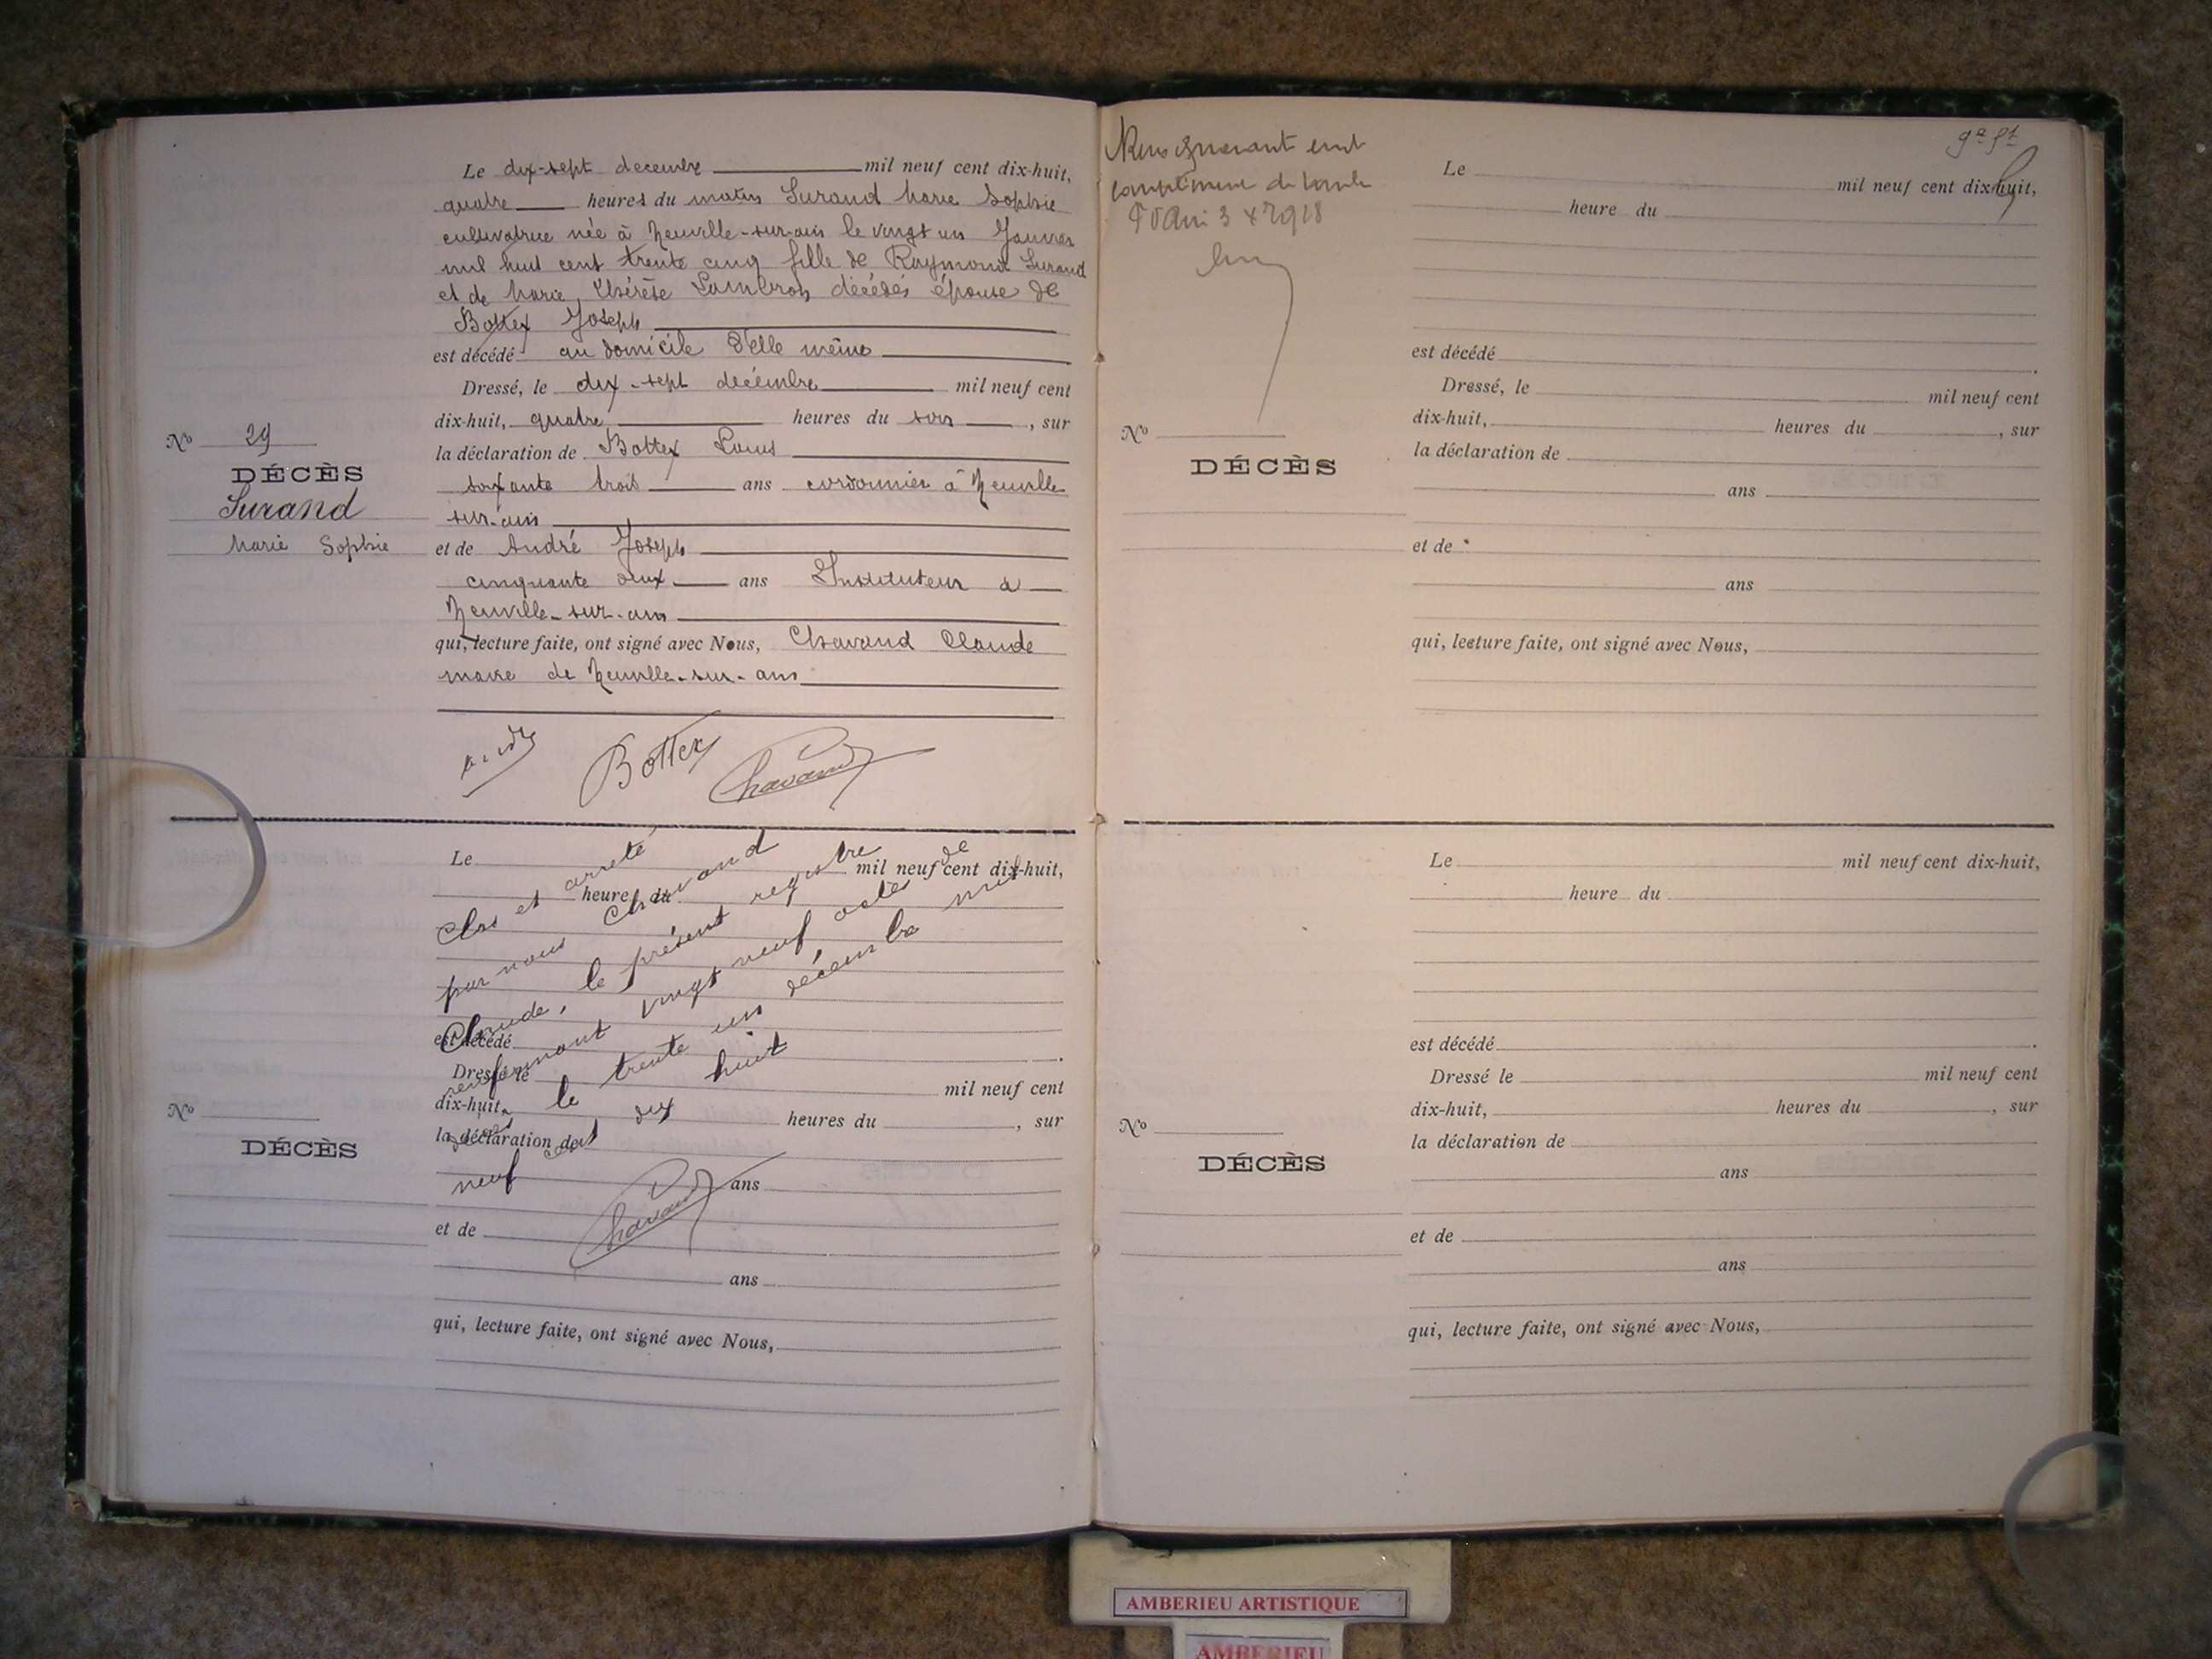 Le dix-sept decembre mil neuf cent dix-huit,
quatre heures du matin Surand Marie Sophie
cultivatrice née à Neuville-sur-ain le vingt un Janvier
mil huit cent trente cinq fille de Raymond Surand
et de Marie, Thérèse décédés épouse de
Bottex Joseph
est décédé au domicile d'elle même
Dressé, le dix-sept décembre mil neuf cent
dix-huit, quatre heures du soir, sur
la déclaration de Bottex Louis
soixante trois ans cordonnier à Neuville
sur-ain
et de André Joseph
cinquante deux ans Instituteur à
Neuville-sur-ain
qui, lecture faite, ont signé avec Nous, Chavand Claude
maire de Neuville-sur-ain
No 29
DÉCÈS
Surand
Marie Sophie
Bottex Chavand
Le mil neuf cent dix-huit,
heure du
est décédé
Dressé le mil neuf cent
dix-huit, heures du , sur
la déclaration de
ans
et de
ans
qui, lecture faite, ont signé avec Nous,
No
DÉCÈS
Clos et arreté
par nous Chavand
Claude, le présent registre de
renfermant vingt neuf actes
le trente un décembre mil
neuf cent dix huit
Chavand
Le mil neuf cent dix-huit,
heure du
est décédé
Dressé, le mil neuf cent
dix-huit, heures du , sur
la déclaration de
ans
et de
ans
qui, lecture faite, ont signé avec Nous,
No
DÉCÈS
Le mil neuf cent dix-huit,
heure du
est décédé
Dressé le mil neuf cent
dix-huit, heures du , sur
la déclaration de
ans
et de
ans
qui, lecture faite, ont signé avec Nous,
No
DÉCÈS
AMBERIEU ARTISTIQUE
AMBERIEU